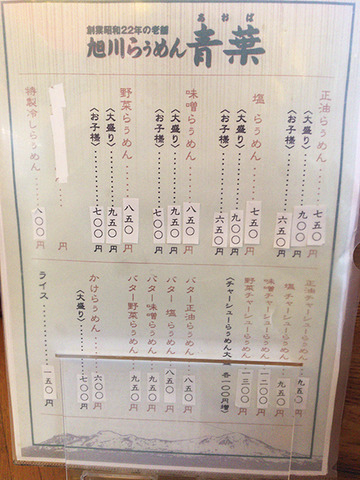 創業昭和22年の老舗
旭川らぅめん青葉
あおば
正油らぅめん………七五〇円
〈大盛り〉………九〇〇円
〈お子様〉………六五〇円
塩らぅめん………七五〇円
〈大盛り〉………九〇〇円
〈お子様〉………六五〇円
味噌らぅめん………八五〇円
〈大盛り〉………九五〇円
〈お子様〉………七〇〇円
野菜らぅめん………八五〇円
〈大盛り〉………九五〇円
〈お子様〉………七〇〇円
円
特製冷しらぅめん………八〇〇円
正油チャーシューらぅめん…九五〇円
塩チャーシューらぅめん…九五〇円
味噌チャーシューらぅめん…一二〇〇円
野菜チャーシューらぅめん…一三〇〇円
〈チャーシューらぅめん大 各一〇〇円増〉
バター正油らぅめん…八五〇円
バター塩らぅめん…八五〇円
バター味噌らぅめん…九五〇円
バター野菜らぅめん…九五〇円
かけらぅめん………六〇〇円
〈大盛り〉………七〇〇円
ライス………一五〇円